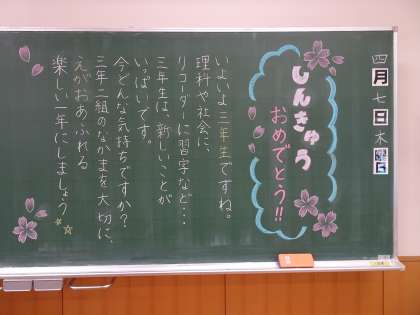 四月七日木
しんきゅう
おめでとう!!
いよいよ三年生ですね。
理科や社会に、
リコーダーに習字など…
三年生は、新しいことが
いっぱいです。
今どんな気持ちですか?
三年二組のなかまを大切に、
えがおあふれる
楽しい一年にしましょう